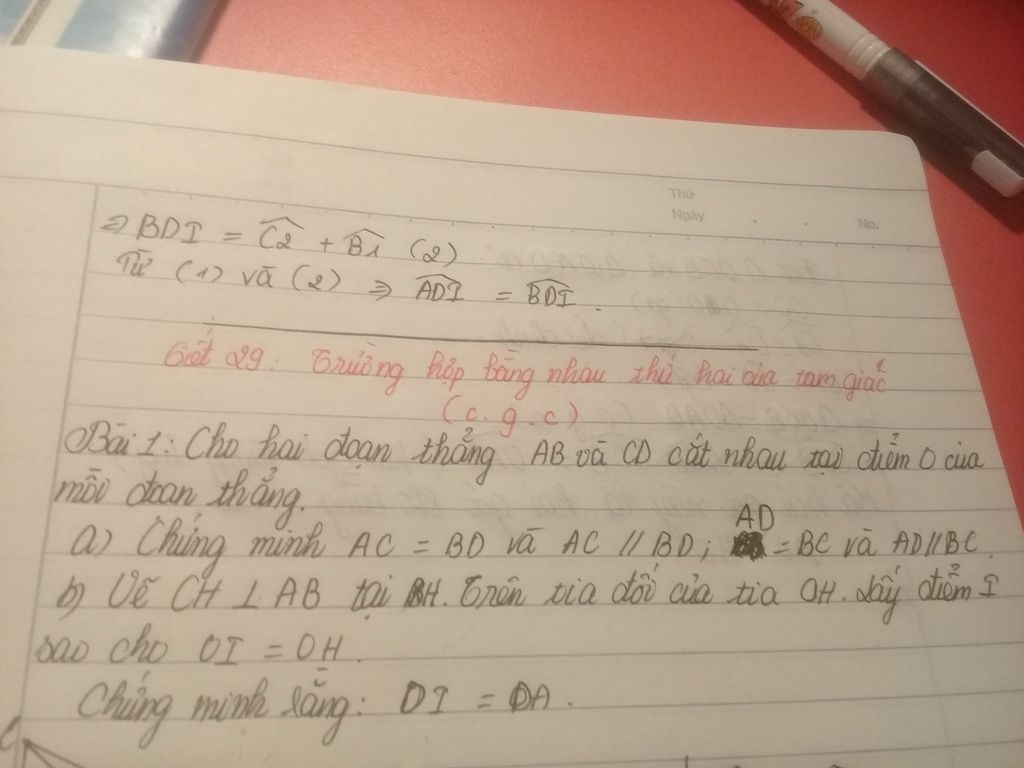 Thứ
Ngày
No.
⇒ BDI = Ĉ2 + B̂1 (2)
Từ (1) và (2) ⇒ ADI = BDI.
Tiết 29: Trường hợp bằng nhau thứ hai của tam giác
(c.g.c)
Bài 1: Cho hai đoạn thẳng AB và CD cắt nhau tại điểm O của
mỗi đoạn thẳng.
a) Chứng minh AC = BD và AC // BD; AD = BC và AD // BC.
b) Vẽ CH ⊥ AB tại H. Trên tia đối của tia OH. lấy điểm I
sao cho OI = OH.
Chứng minh rằng: DI =